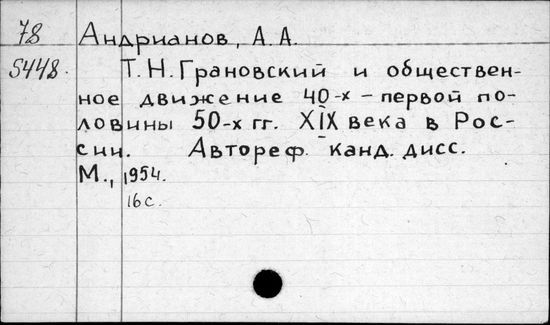 78
Андрианов, А. А.
S448.
Т. Н. Грановский и обществен-
ное движение 40-х - первой по-
ловины 50-х гг. XIX века в Рос-
сии. Автореф. канд. дисс.
М., 1954.
16 с.